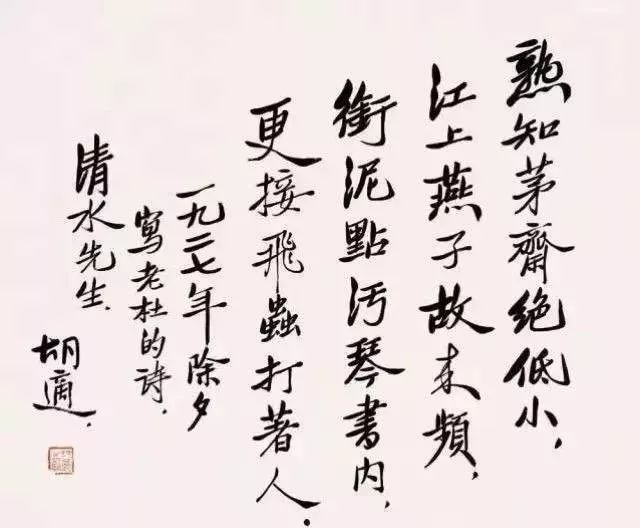 熟知茅齋絕低小，
江上燕子故來頻，
銜泥點汚琴書內，
更接飛蟲打著人．
一九二七年除夕
寫老杜的詩．
清水先生．
胡適．